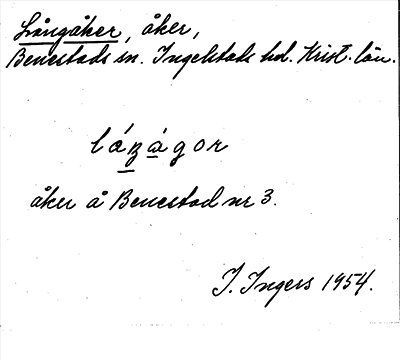 Långåker, åker,
Benestads sn. Ingelstads hd. Krist. län.
åker å Benestad nr 3.
J. Ingers 1954.